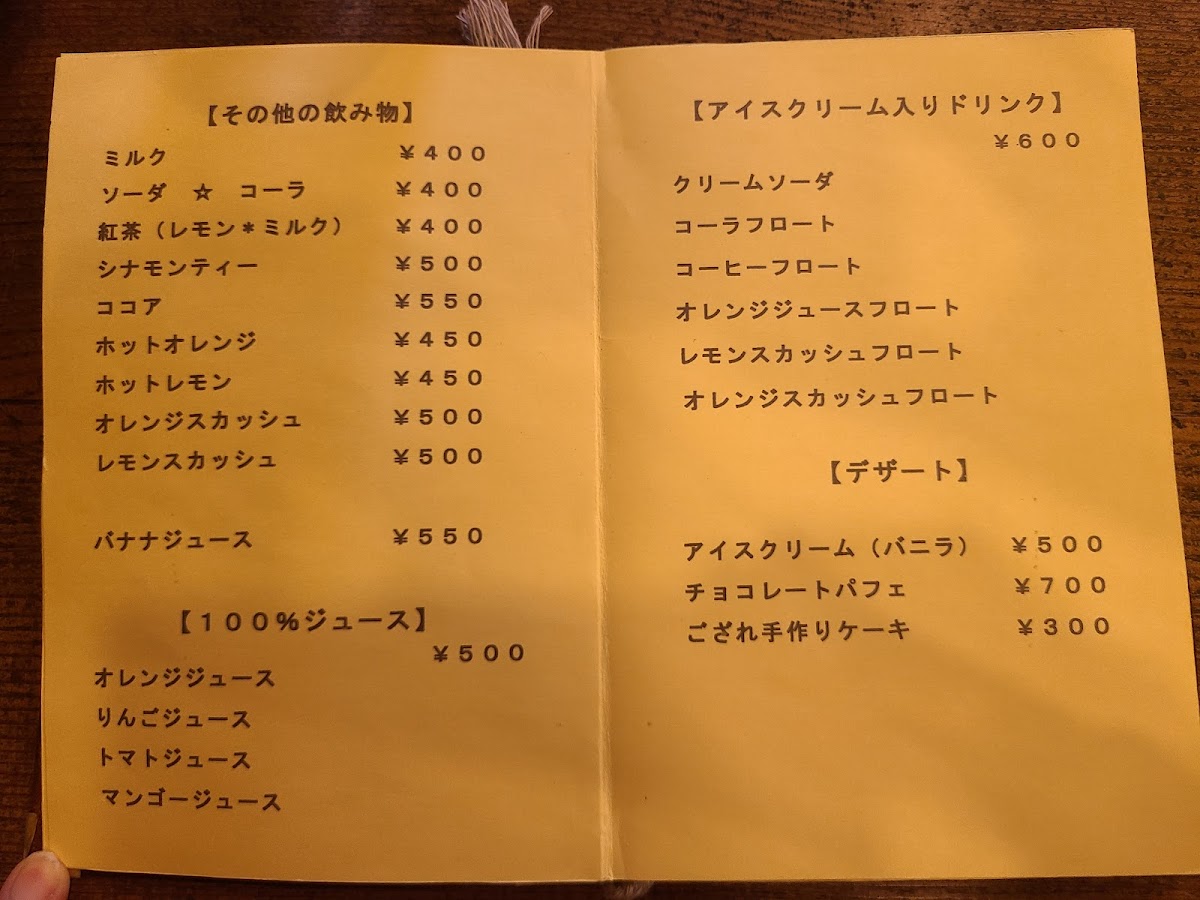 【その他の飲み物】
ミルク ￥４００
ソーダ ☆ コーラ ￥４００
紅茶（レモン＊ミルク） ￥４００
シナモンティー ￥５００
ココア ￥５５０
ホットオレンジ ￥４５０
ホットレモン ￥４５０
オレンジスカッシュ ￥５００
レモンスカッシュ ￥５００
バナナジュース ￥５５０
【１００％ジュース】
￥５００
オレンジジュース
りんごジュース
トマトジュース
マンゴージュース
【アイスクリーム入りドリンク】
￥６００
クリームソーダ
コーラフロート
コーヒーフロート
オレンジジュースフロート
レモンスカッシュフロート
オレンジスカッシュフロート
【デザート】
アイスクリーム（バニラ） ￥５００
チョコレートパフェ ￥７００
ござれ手作りケーキ ￥３００